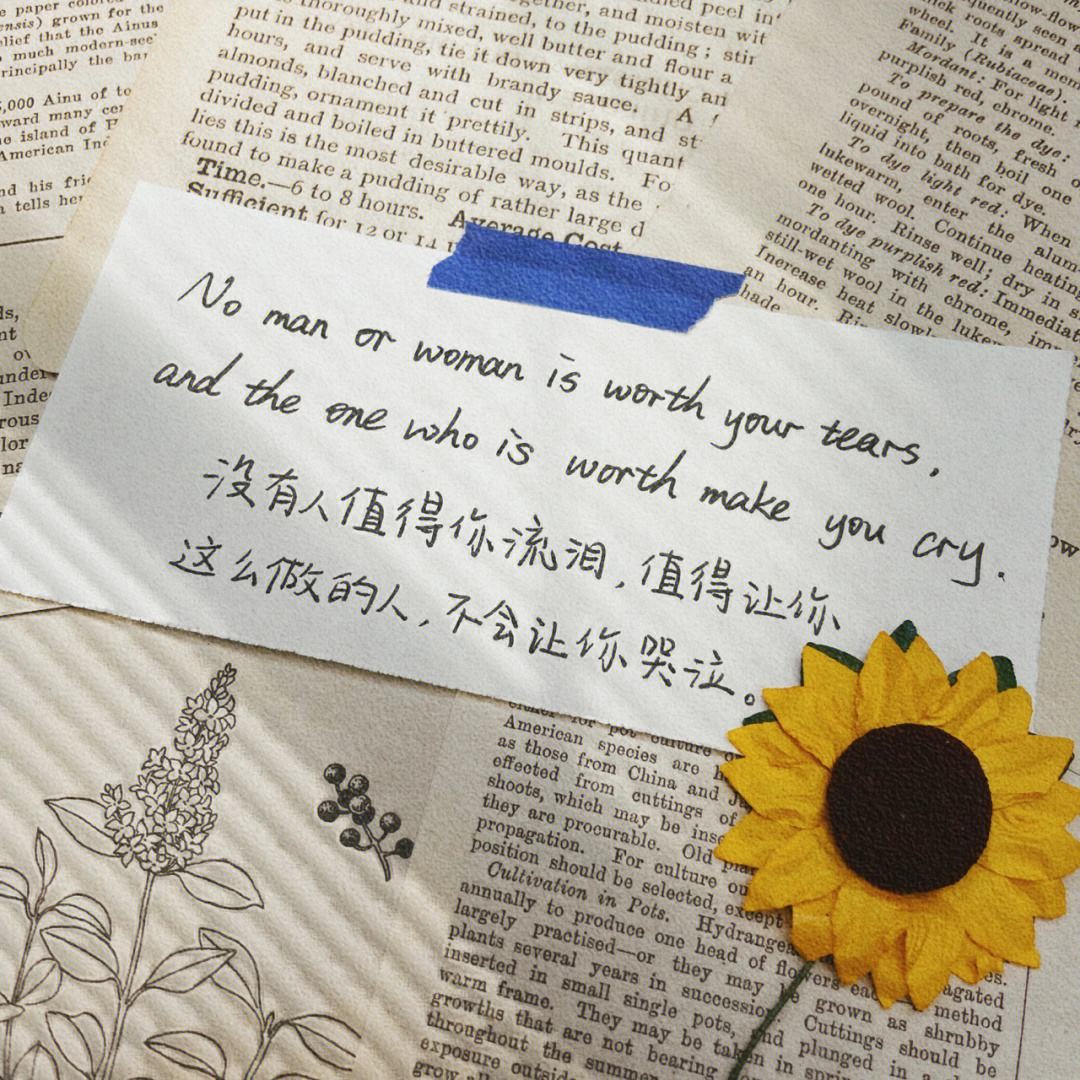 paper colored
ensis) grown for the
elief that the Ainus
much modern-see
rincipally the bar
5,000 Ainu of to
ward many cen
e island of
American Ind
nd his frie
tells her
and strained, to the pudding; stir
thoroughly mixed, well butter and flour a
put in the pudding, tie it down very tightly an
hours, and serve with brandy sauce. A
almonds, blanched and cut in strips, and st
pudding, ornament it prettily. This quant
divided and boiled in buttered moulds. Fo
lies this is the most desirable way, as the
found to make a pudding of rather large d
Time.—6 to 8 hours. Average Cost
Sufficient for 12 or 14
quently seen
roots spread
wheel. It is a mem
Family (Rubiaceae).
Mordant: For light
purplish red, chrome.
To prepare the dye:
pound of roots, fresh o
overnight, then boil one
liquid into bath for dye.
To dye light red: When
lukewarm, enter the alum-
wetted wool. Continue heating
one hour. Rinse well; dry in s
To dye purplish red: Immediat
mordanting with chrome, im
still-wet wool in the luke
Increase heat slowl
an hour.
hade
No man or woman is worth your tears,
and the one who is worth make you cry.
没有人值得你流泪，值得让你
这么做的人，不会让你哭泣。
either for pot culture
American species are
as those from China and
effected from cuttings of
shoots, which may be inse
they are procurable. Old
propagation. For culture ou
position should be selected, except
Cultivation in Pots. Hydrangea
annually to produce one head of flowers
largely practised—or they may be grown as shrubby
plants several years in succession. Cuttings should be
inserted in small single pots, and plunged in a
warm frame. They may be taken in
growths that are not bearing
throughout the summer
exposure outside
grow
agated
method